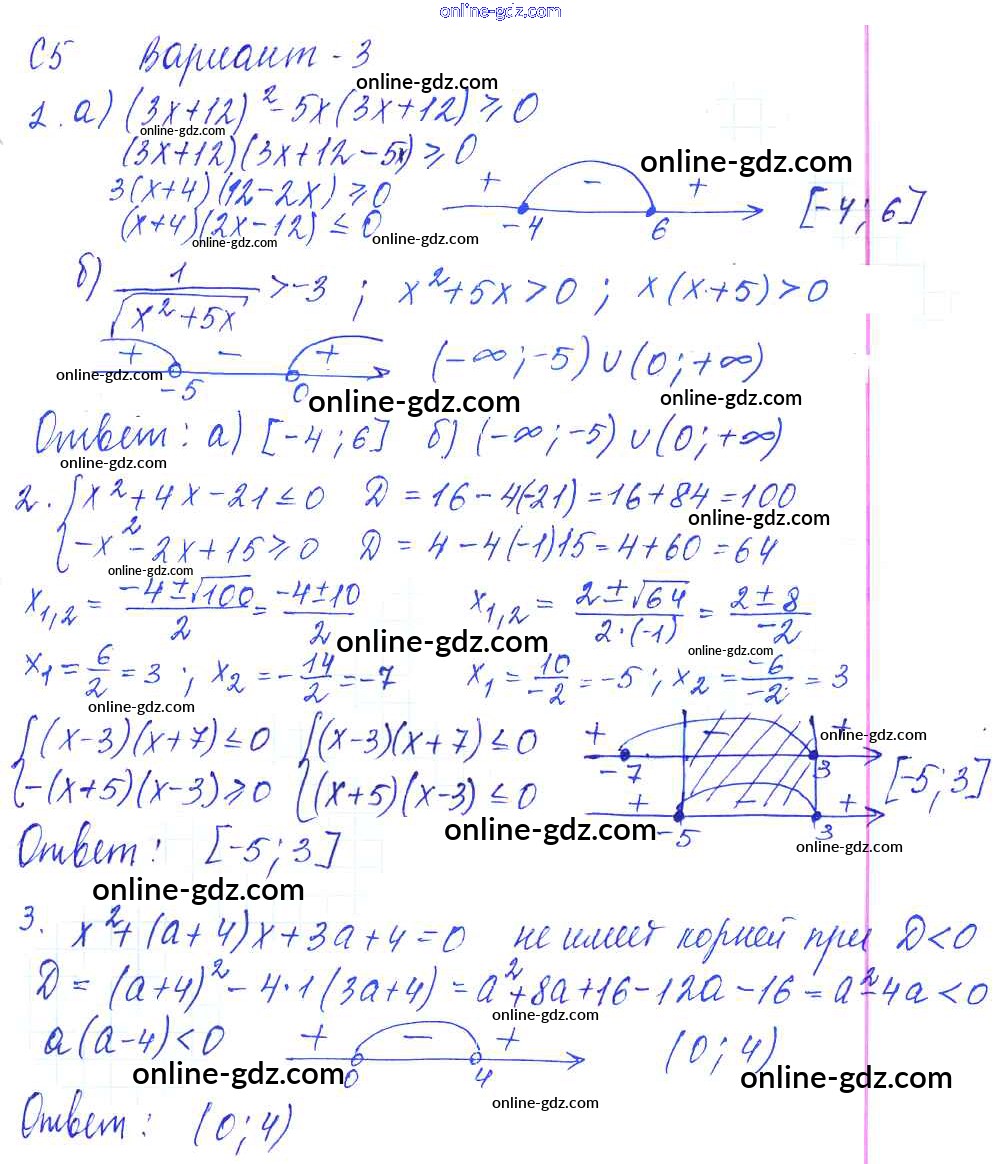 online-gdz.com
С5 Вариант - 3
online-gdz.com
1. а) (3x+12)² - 5x(3x+12) ≥ 0
online-gdz.com
(3x+12)(3x+12-5x) ≥ 0
online-gdz.com
3(x+4)(12-2x) ≥ 0
(x+4)(2x-12) ≤ 0
+ - + -4 6 [-4; 6]
online-gdz.com online-gdz.com
б) 1/√(x²+5x) > -3 ; x²+5x > 0 ; x(x+5) > 0
+ - + -5 0 (-∞; -5) ∪ (0; +∞)
online-gdz.com
online-gdz.com online-gdz.com
Ответ: а) [-4; 6] б) (-∞; -5) ∪ (0; +∞)
online-gdz.com
2. { x²+4x-21 ≤ 0 D = 16-4(-21) = 16+84 = 100
online-gdz.com
{ -x²-2x+15 ≥ 0 D = 4-4(-1)15 = 4+60 = 64
online-gdz.com
x₁,₂ = (-4±√100)/2 = (-4±10)/2 x₁,₂ = (2±√64)/(2·(-1)) = (2±8)/-2
online-gdz.com online-gdz.com
x₁ = 6/2 = 3 ; x₂ = -14/2 = -7 x₁ = 10/-2 = -5 ; x₂ = -6/-2 = 3
online-gdz.com
{ (x-3)(x+7) ≤ 0 { (x-3)(x+7) ≤ 0 + - + -7 3
online-gdz.com
{ -(x+5)(x-3) ≥ 0 { (x+5)(x-3) ≤ 0 + - + -5 3 [-5; 3]
online-gdz.com
Ответ: [-5; 3]
online-gdz.com
online-gdz.com
3. x²+(a+4)x+3a+4=0 не имеет корней при D<0
D = (a+4)² - 4·1(3a+4) = a²+8a+16-12a-16 = a²-4a < 0
online-gdz.com
a(a-4) < 0 + - + 0 4 (0; 4)
online-gdz.com online-gdz.com
online-gdz.com
Ответ: (0; 4)